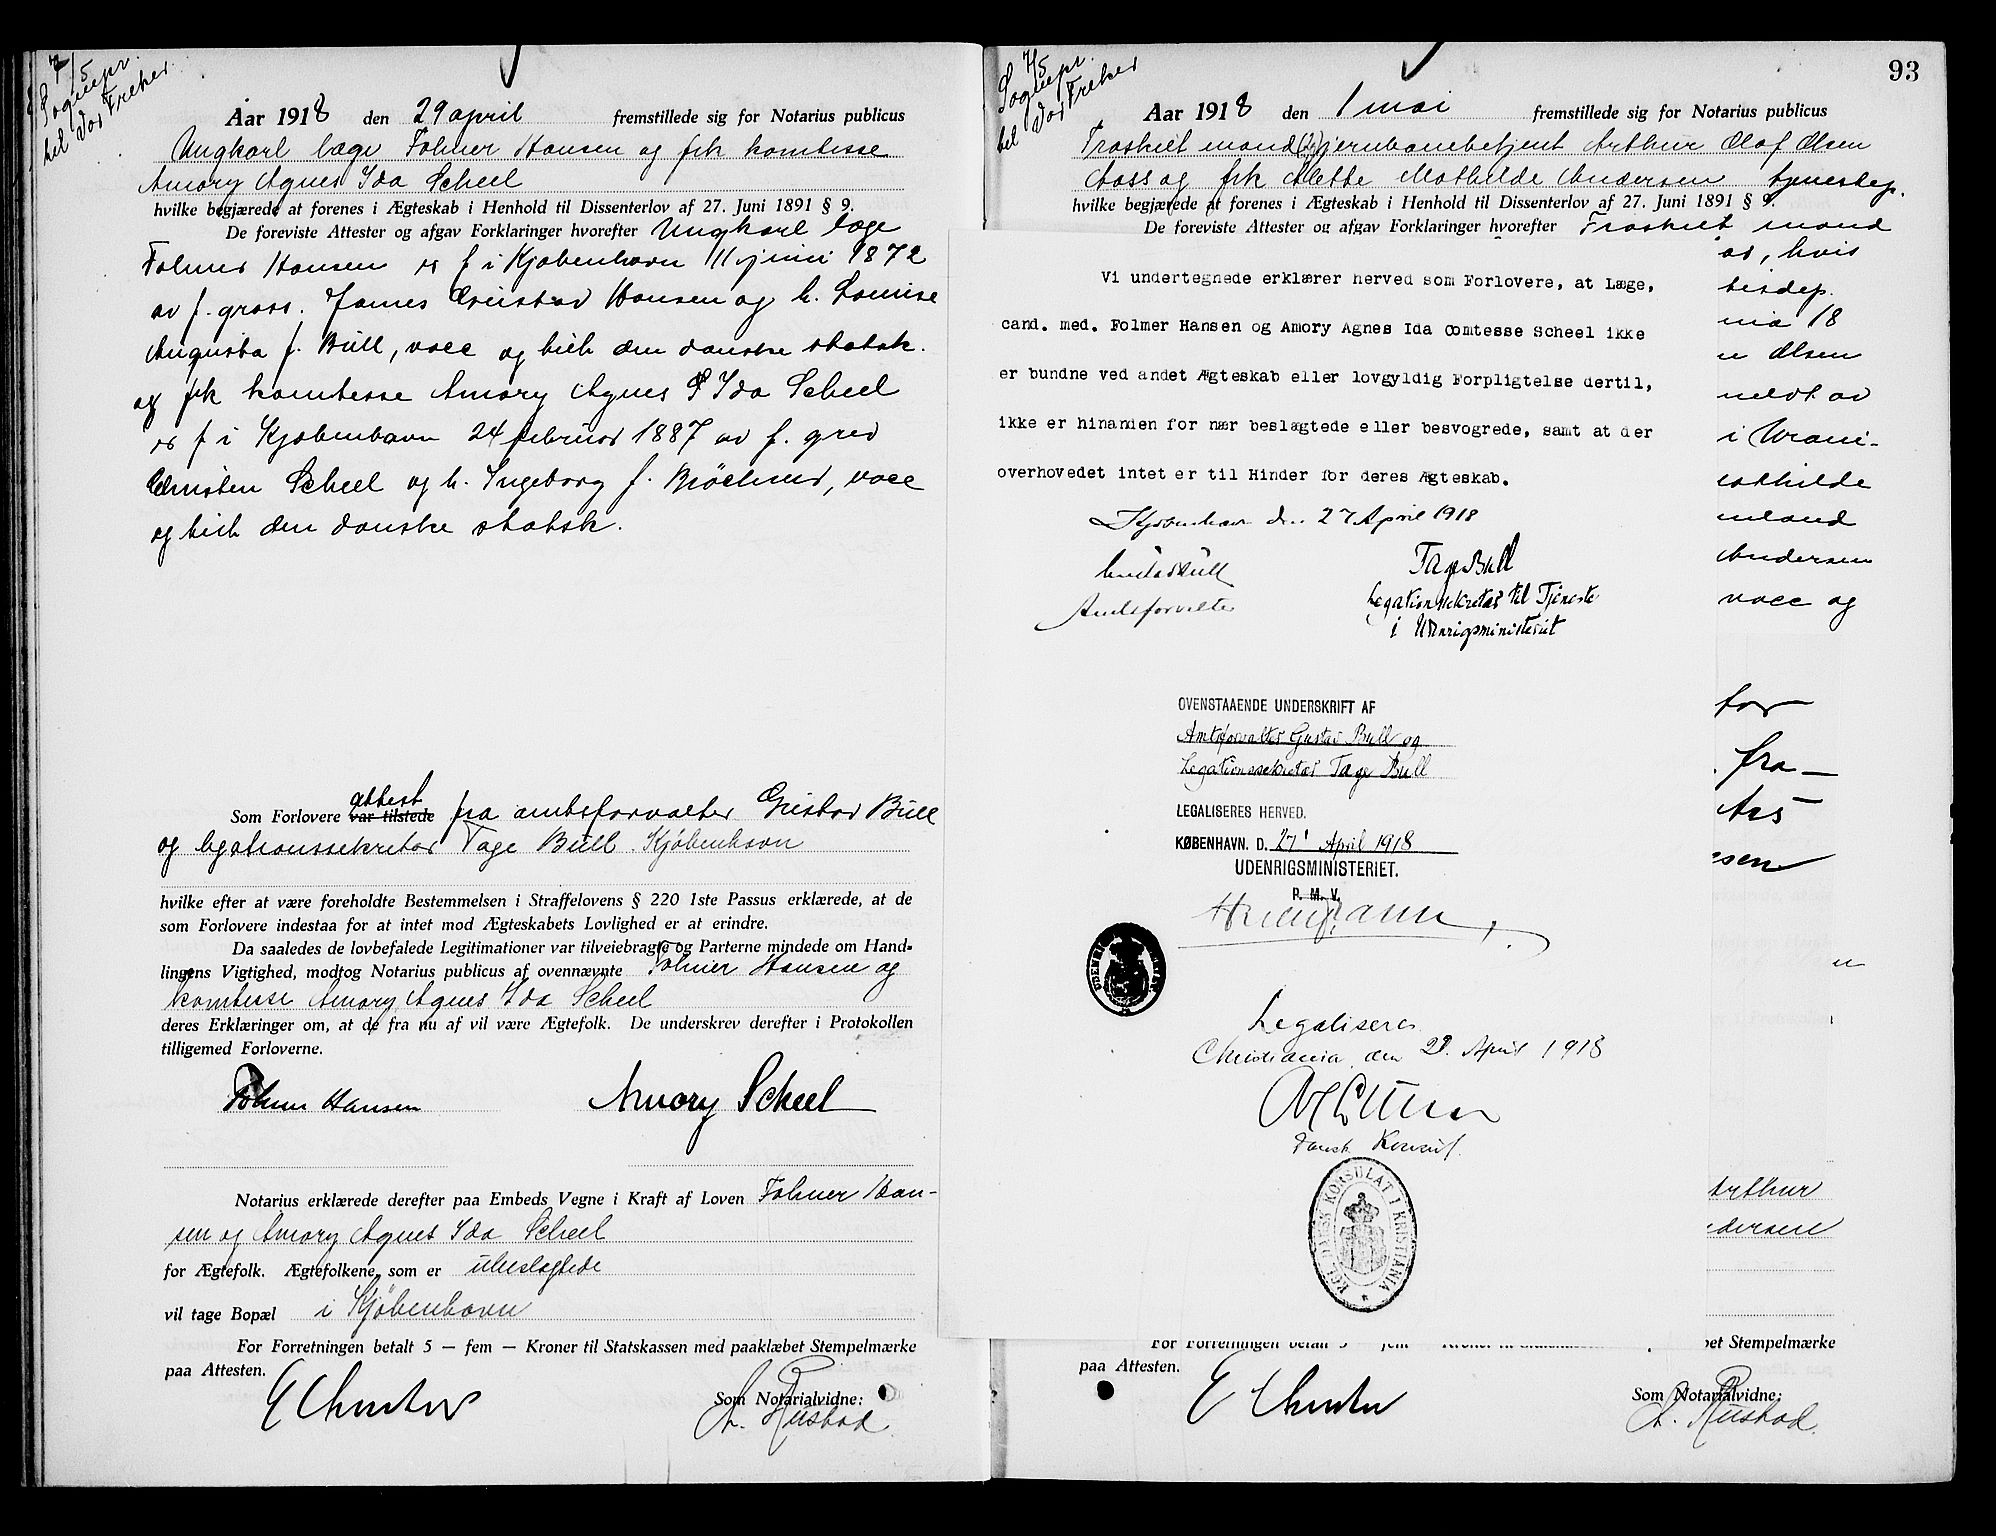 7/5
Sognepr.
til Vor Frelser
Aar 1918 den 29 april fremstillede sig for Notarius publicus
Ungkarl læge Folmer Hansen og frk komtesse
Amory Agnes Ida Scheel
hvilke begjærede at forenes i Ægteskab i Henhold til Dissenterlov af 27. Juni 1891 § 9.
De foreviste Attester og afgav Forklaringer hvorefter Ungkarl læge
Folmer Hansen er f i Kjøbenhavn 11 juni 1872
av f. gross. James Gustav Hansen og h. Louise
Augusta f. Bull, vacc og tilh den danske statsk.
og frk komtesse Amory Agnes Ida Scheel
er f i Kjøbenhavn 24 februar 1887 av f. grev
Christen Scheel og h. Ingeborg f. Bröchner, vacc
og tilh den danske statsk.
Som Forlovere var tilstede attest fra amtsforvalter Gustav Bull
og legationssekretær Tage Bull. Kjøbenhavn
hvilke efter at være foreholdte Bestemmelsen i Straffelovens § 220 1ste Passus erklærede, at de
som Forlovere indestaa for at intet mod Ægteskabets Lovlighed er at erindre.
Da saaledes de lovbefalede Legitimationer var tilveiebragte og Parterne mindede om Hand-
lingens Vigtighed, modtog Notarius publicus af ovennævnte Folmer Hansen og
komtesse Amory Agnes Ida Scheel
deres Erklæringer om, at de fra nu af vil være Ægtefolk. De underskrev derefter i Protokollen
tilligemed Forloverne.
Folmer Hansen Amory Scheel
Notarius erklærede derefter paa Embeds Vegne i Kraft af Loven Folmer Han-
sen og Amory Agnes Ida Scheel
for Ægtefolk. Ægtefolkene, som er ubeslægtede
vil tage Bopæl i Kjøbenhavn
For Forretningen betalt 5 — fem — Kroner til Statskassen med paaklæbet Stempelmærke
paa Attesten.
Som Notarialvidne:
A. Rustad
93
7/5
Sognepr.
til Vor Frelser
Aar 1918 den 1 mai fremstillede sig for Notarius publicus
Fraskilt mand (2) jernbanebetjent Arthur Olaf Olsen
Aass og frk Alette Mathilde Andersen tjenestep.
hvilke begjærede at forenes i Ægteskab i Henhold til Dissenterlov af 27. Juni 1891 § 9.
De foreviste Attester og afgav Forklaringer hvorefter Fraskilt mand
hvis
nia 18
Olsen
meldt av
i Vrani-
athilde
Andersen
vacc og
fra
Vi undertegnede erklærer herved som Forlovere, at Læge,
cand. med. Folmer Hansen og Amory Agnes Ida Comtesse Scheel ikke
er bundne ved andet Ægteskab eller lovgyldig Forpligtelse dertil,
ikke er hinanden for nær beslægtede eller besvogrede, samt at der
overhovedet intet er til Hinder for deres Ægteskab.
Kjøbenhavn den 27 April 1918
Gustav Bull Tage Bull
Amtsforvalter Legationssekretær til Tjeneste
i Udenrigsministeriet
OVENSTAAENDE UNDERSKRIFT AF
Amtsforvalter Gustav Bull og
Legationssekretær Tage Bull
LEGALISERES HERVED.
KØBENHAVN. D. 27' April 1918
UDENRIGSMINISTERIET.
P. M. V.
Legaliseres
Christiania, den 29. April 1918
Dansk Konsul.
KGL. DANSK KONSULAT I KRISTIANIA
Arthur
dersen
For Forretningen betalt 5 — fem — Kroner
bet Stempelmærke
paa Attesten.
Som Notarialvidne:
A. Rustad